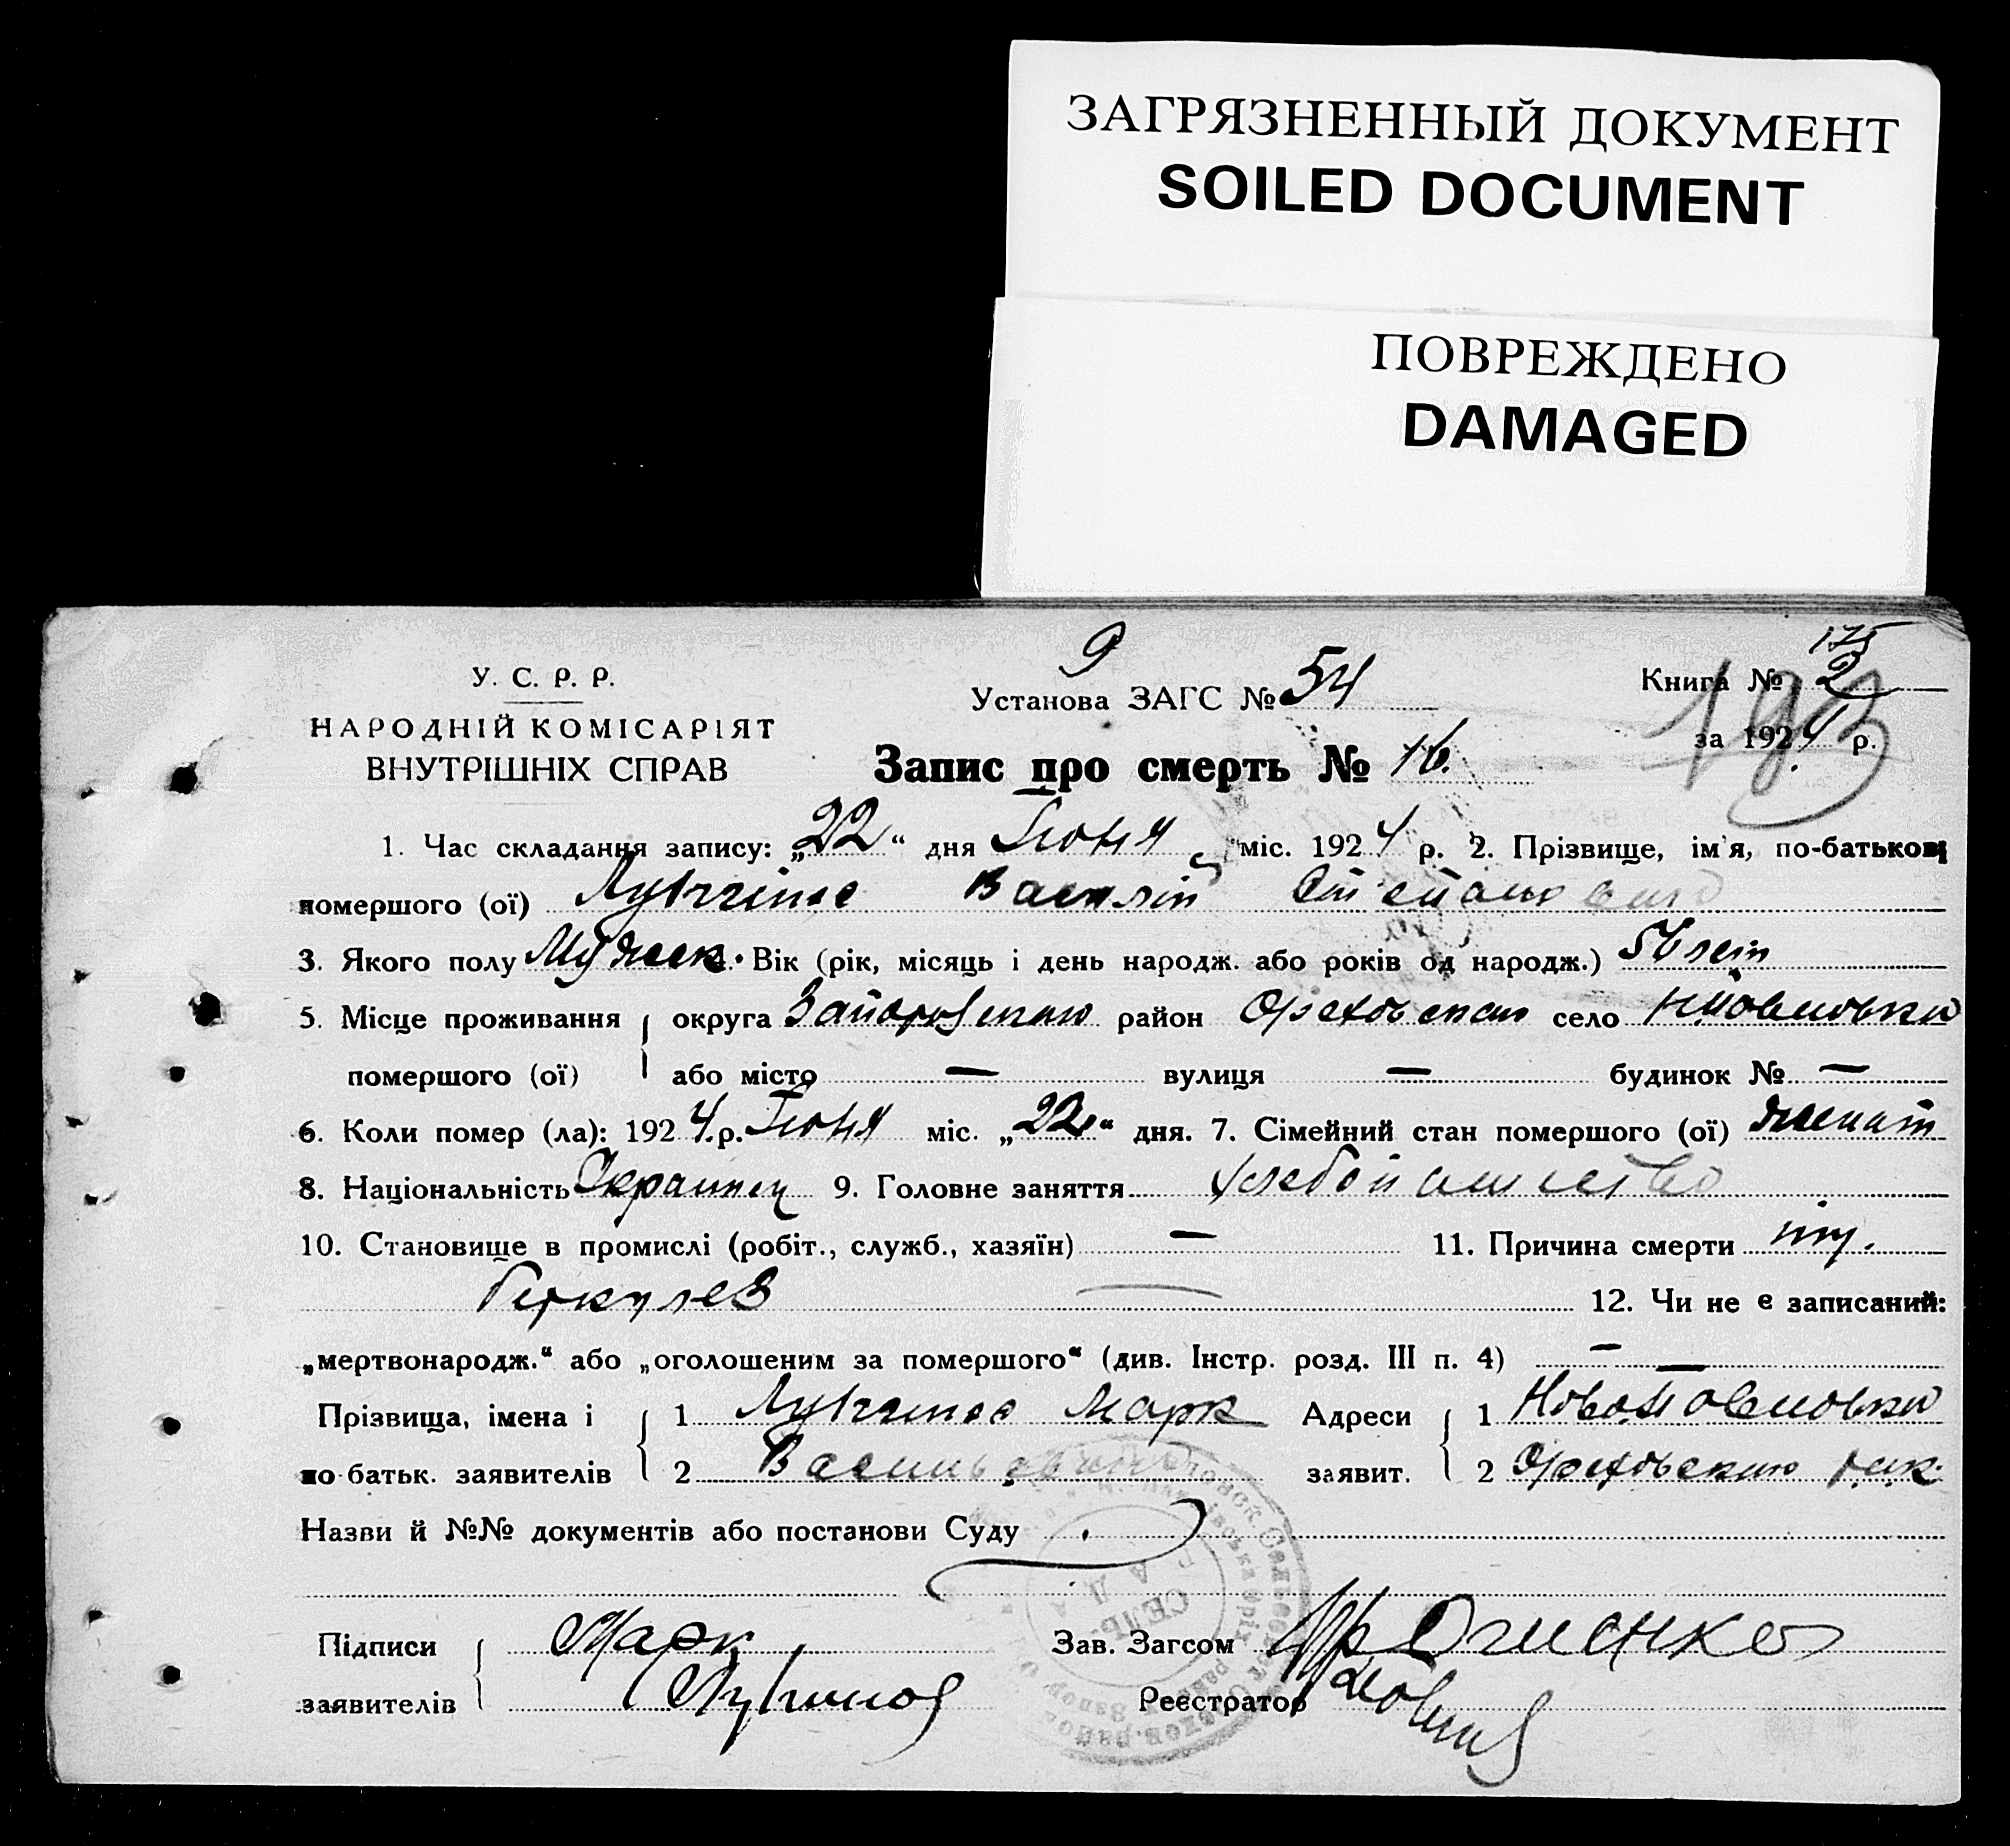 ЗАГРЯЗНЕННЫЙ ДОКУМЕНТ
SOILED DOCUMENT
ПОВРЕЖДЕНО
DAMAGED
У. С. Р. Р.
НАРОДНІЙ КОМІСАРІЯТ
ВНУТРІШНІХ СПРАВ
9
Установа ЗАГС № 54
175
Книга № 2
193
за 1924 р.
Запис про смерть № 16.
1. Час складання запису: „22“ дня Июня міс. 1924 р. 2. Прізвище, ім'я, по-батькові
помершого (ої) Василій Степанович
3. Якого полу Мужеск. Вік (рік, місяць і день народж. або років од народж.) 56 лет
5. Місце проживання округа район Ореховского село
помершого (ої) або місто — вулиця — будинок № —
6. Коли помер (ла): 1924 р. Июня міс. „22“ дня. 7. Сімейний стан помершого (ої) женат
8. Національність Украинец 9. Головне заняття хлебопашество
10. Становище в промислі (робіт., служб., хазяїн) — 11. Причина смерти ту.
беркулез — 12. Чи не є записаний:
„мертвонародж.“ або „оголошеним за помершого“ (див. Інстр. розд. III п. 4) —
Прізвища, імена і 1 Марк Адреси 1
по батьк. заявителів 2 Васильевич заявит. 2 Ореховского
Назви й №№ документів або постанови Суду
СЕЛЬ-
Підписи Марк Зав. Загсом
заявителів Реєстратор